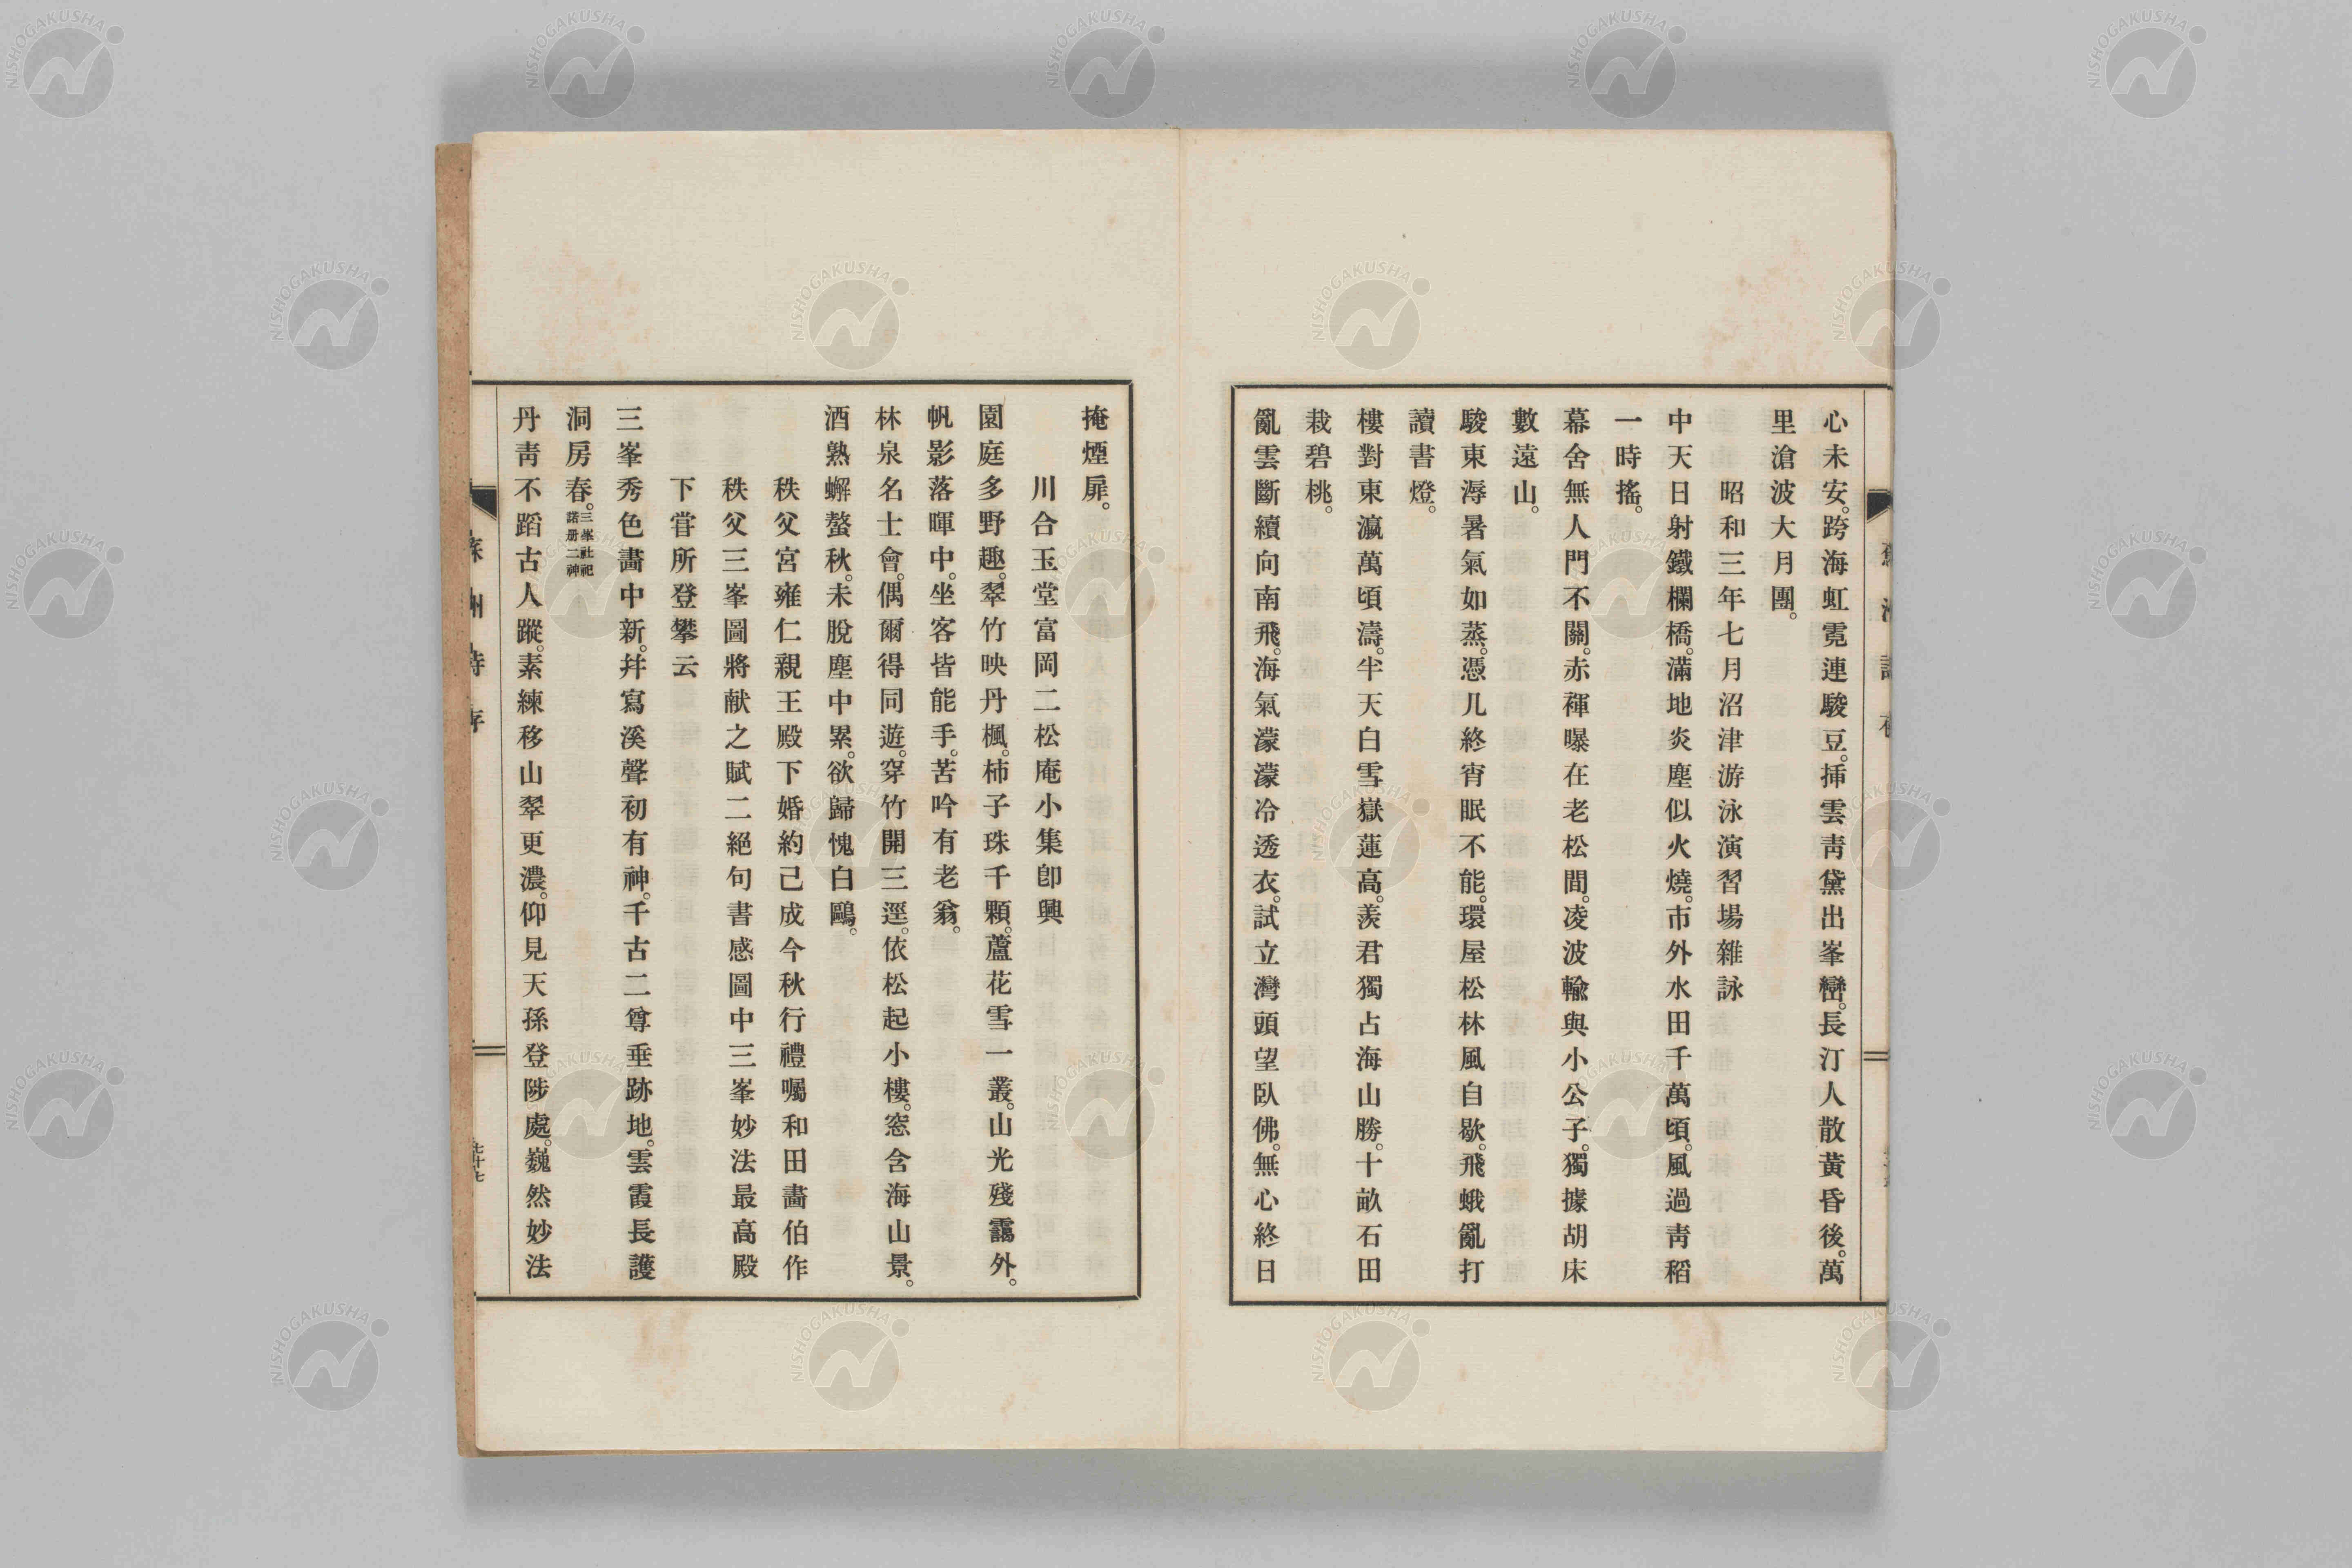 心未安。跨海虹霓連駿豆。揷雲靑黛出峯巒。長汀人散黃昏後。萬
里滄波大月團。
昭和三年七月沼津游泳演習場雜詠
中天日射鐵欄橋。滿地炎塵似火燒。市外水田千萬頃。風過靑稻
一時搖。
幕舍無人門不關。赤褌曝在老松間。凌波輸與小公子。獨據胡床
數遠山。
駿東溽暑氣如蒸。憑几終宵眠不能。環屋松林風自歇。飛蛾亂打
讀書燈。
樓對東瀛萬頃濤。半天白雪嶽蓮高。羨君獨占海山勝。十畝石田
栽碧桃。
亂雲斷續向南飛。海氣濛濛冷透衣。試立灣頭望臥佛。無心終日
掩煙扉。
川合玉堂富岡二松庵小集卽興
園庭多野趣。翠竹映丹楓。柿子珠千顆。蘆花雪一叢。山光殘靄外。
帆影落暉中。坐客皆能手。苦吟有老翁。
林泉名士會。偶爾得同遊。穿竹開三逕。依松起小樓。窓含海山景。
酒熟蠏螯秋。未脫塵中累。欲歸愧白鷗。
秩父宮雍仁親王殿下婚約已成今秋行禮囑和田畵伯作
秩父三峯圖將献之賦二絕句書感圖中三峯妙法最高殿
下甞所登攀云
三峯秀色畵中新。幷寫溪聲初有神。千古二尊垂跡地。雲霞長護
洞房春。三峯社祀諾册二神
丹靑不蹈古人蹤。素練移山翠更濃。仰見天孫登陟處。巍然妙法
七十七
NISHOGAKUSHA